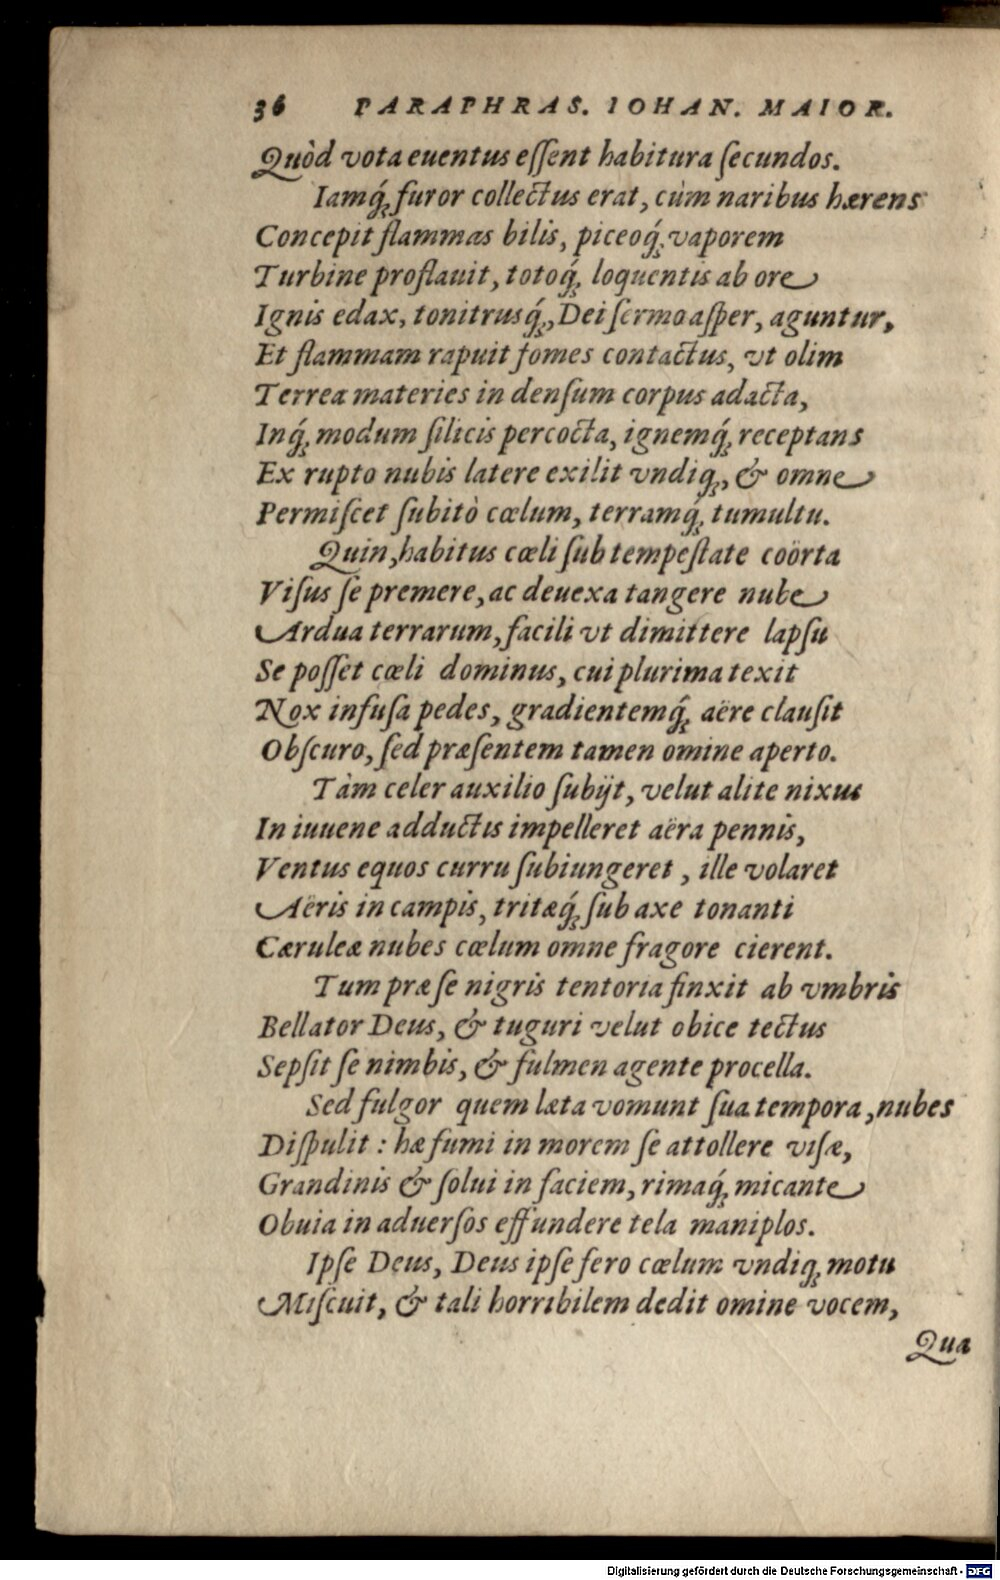 36 PARAPHRAS. IOHAN. MAIOR.
Quòd vota euentus eſſent habitura ſecundos.
Iamq́ꝫ furor collectus erat, cùm naribus hærens
Concepit flammas bilis, piceoq́ꝫ vaporem
Turbine proflauit, totoq́ꝫ loquentis ab ore
Ignis edax, tonitrusq́ꝫ, Dei ſermo aſper, aguntur,
Et flammam rapuit fomes contactus, vt olim
Terrea materies in denſum corpus adacta,
Inq́ꝫ modum ſilicis percocta, ignemq́ꝫ receptans
Ex rupto nubis latere exilit vndiqꝫ, & omne
Permiſcet ſubitò cœlum, terramq́ꝫ tumultu.
Quin, habitus cœli ſub tempeſtate coörta
Viſus ſe premere, ac deuexa tangere nube
Ardua terrarum, facili vt dimittere lapſu
Se poſſet cœli dominus, cui plurima texit
Nox infuſa pedes, gradientemq́ꝫ aëre clauſit
Obſcuro, ſed præſentem tamen omine aperto.
Tàm celer auxilio ſubijt, velut alite nixus
In iuuene adductis impelleret aëra pennis,
Ventus equos curru ſubiungeret, ille volaret
Aëris in campis, tritæq́ꝫ ſub axe tonanti
Cæruleæ nubes cœlum omne fragore cierent.
Tum præ ſe nigris tentoria finxit ab vmbris
Bellator Deus, & tuguri velut obice tectus
Sepſit ſe nimbis, & fulmen agente procella.
Sed fulgor quem læta vomunt ſua tempora, nubes
Diſpulit : hæ fumi in morem ſe attollere viſæ,
Grandinis & ſolui in faciem, rimaq́ꝫ micante
Obuia in aduerſos effundere tela maniplos.
Ipſe Deus, Deus ipſe fero cœlum vndiqꝫ motu
Miſcuit, & tali horribilem dedit omine vocem,
Qua
Digitalisierung gefördert durch die Deutsche Forschungsgemeinschaft - DFG